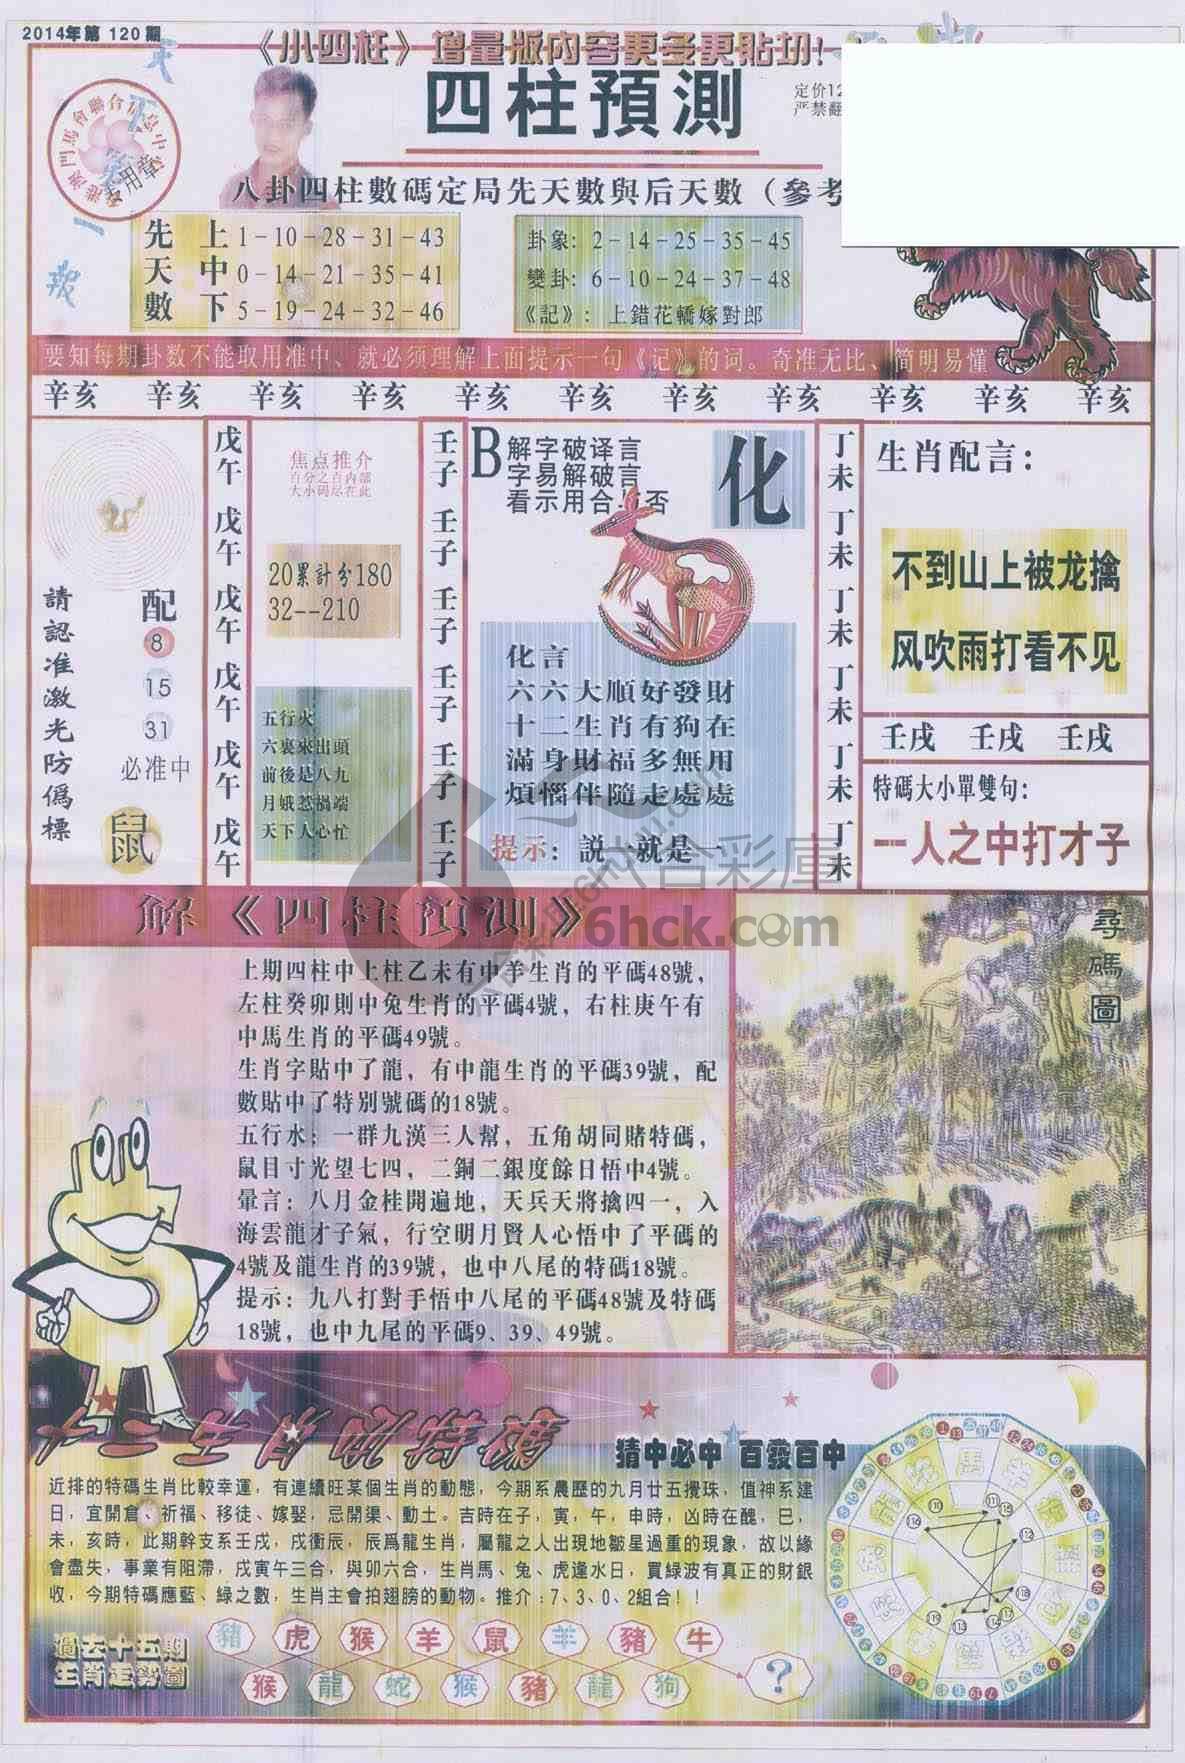 2014年第 120 期
《小四柱》增量版内容更多更贴切!
四柱預測
定价12
严禁翻
八卦四柱數碼定局先天數與后天數（參考
先天數
上 1－10－28－31－43
中 0－14－21－35－41
下 5－19－24－32－46
卦象: 2－14－25－35－45
變卦: 6－10－24－37－48
《記》: 上錯花轎嫁對郎
要知每期卦数不能取用准中、就必须理解上面提示一句《记》的词。奇准无比、简明易懂
辛亥 辛亥 辛亥 辛亥 辛亥 辛亥 辛亥 辛亥 辛亥 辛亥 辛亥
請認准激光防僞標
配
8
15
31
必准中
鼠
戊午 戊午 戊午 戊午 戊午 戊午
焦点推介
百分之百内部
大小码尽在此
20累計分180
32--210
五行火
六裏來出頭
前後是八九
月娥惹禍端
天下人心忙
壬子 壬子 壬子 壬子 壬子 壬子
B
解字破译言
字易解破言
看示用合与否
化
化言
六六大順好發財
十二生肖有狗在
滿身財福多無用
煩惱伴隨走處處
提示: 説一就是一
丁未 丁未 丁未 丁未 丁未 丁未
生肖配言:
不到山上被龙擒
风吹雨打看不见
壬戌 壬戌 壬戌
特碼大小單雙句:
一人之中打才子
六合彩庫
6hck.com
解《四柱預測》
上期四柱中上柱乙未有中羊生肖的平碼48號，
左柱癸卯則中兔生肖的平碼4號，右柱庚午有
中馬生肖的平碼49號。
生肖字貼中了龍，有中龍生肖的平碼39號，配
數貼中了特別號碼的18號。
五行水: 一群九漢三人幫，五角胡同賭特碼，
鼠目寸光望七四，二銅二銀度餘日悟中4號。
暈言: 八月金桂開遍地，天兵天將擒四一，入
海雲龍才子氣，行空明月賢人心悟中了平碼的
4號及龍生肖的39號，也中八尾的特碼18號。
提示: 九八打對手悟中八尾的平碼48號及特碼
18號，也中九尾的平碼9、39、49號。
尋碼圖
猜中必中 百發百中
近排的特碼生肖比較幸運，有連續旺某個生肖的動態，今期系農歷的九月廿五攪珠，值神系建
日，宜開倉、祈福、移徒、嫁娶，忌開渠、動土。吉時在子，寅，午，申時，凶時在醜，巳，
未，亥時，此期幹支系壬戌，戌衝辰，辰爲龍生肖，屬龍之人出現地皺星過重的現象，故以緣
會盡失，事業有阻滯，戌寅午三合，與卯六合，生肖馬、兔、虎逢水日，買緑波有真正的財銀
收，今期特碼應藍、緑之數，生肖主會拍翅膀的動物。推介:7、3、0、2組合!!
過去十五期
生肖走勢圖
豬 虎 猴 羊 鼠 羊 豬 牛
猴 龍 蛇 猴 豬 龍 狗
?